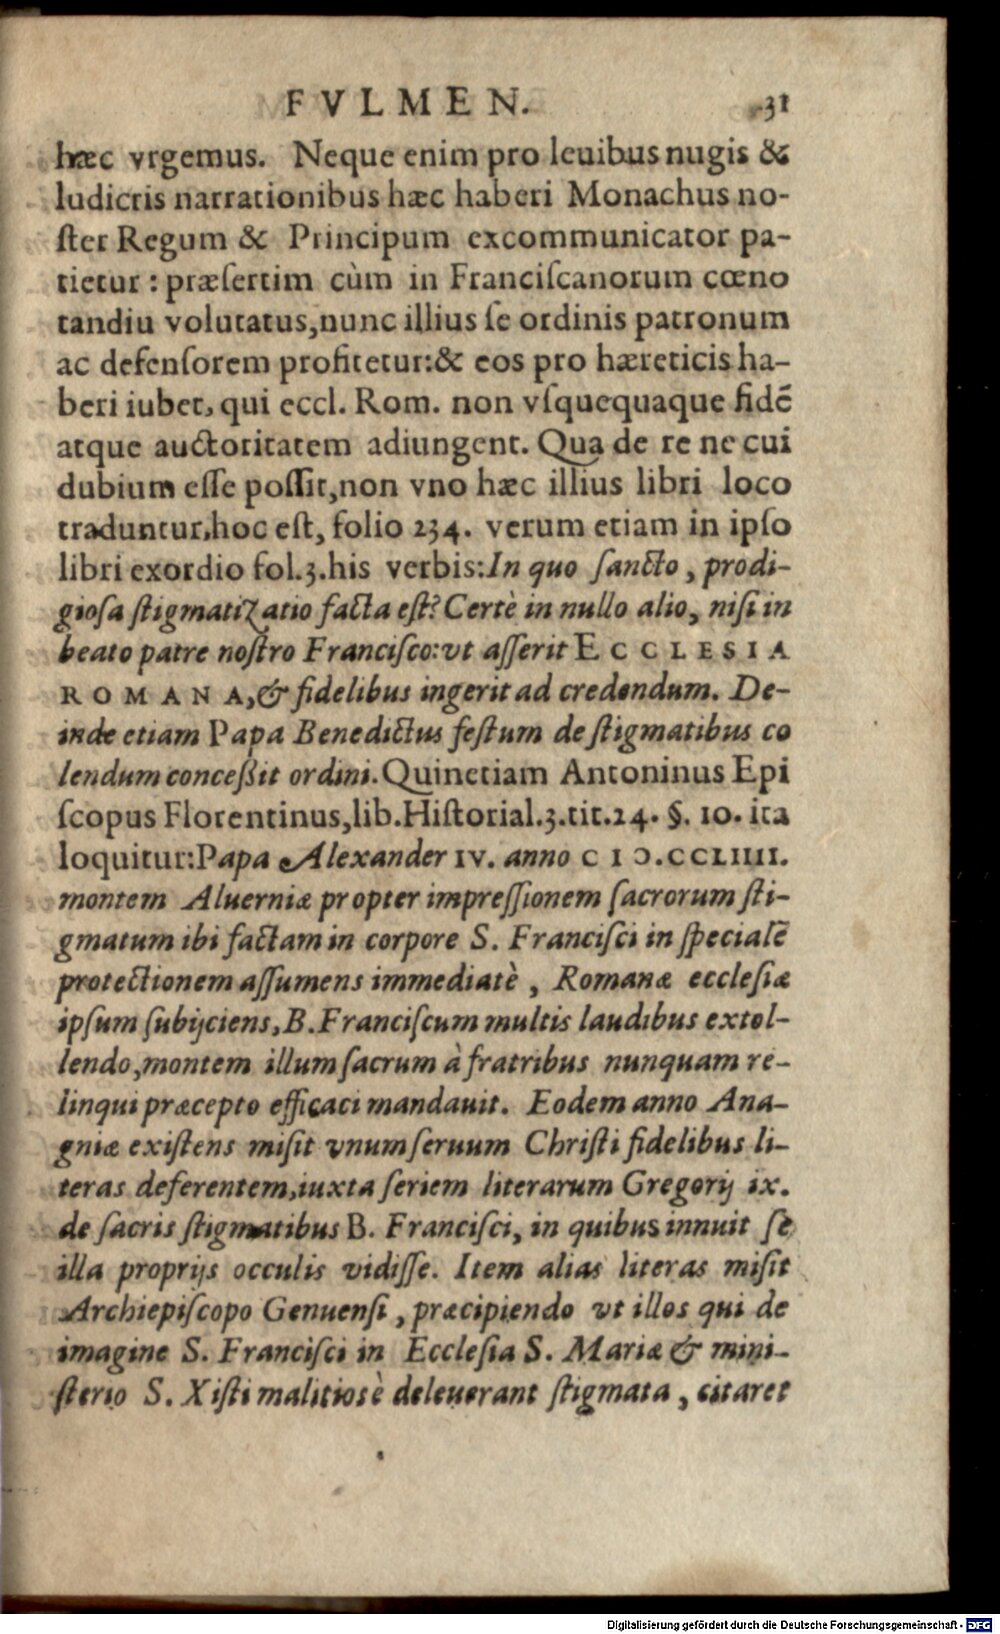 FVLMEN. 31
hæc vrgemus. Neque enim pro leuibus nugis &
ludicris narrationibus hæc haberi Monachus no-
ſter Regum & Principum excommunicator pa-
tietur: præſertim cùm in Franciſcanorum cœno
tandiu volutatus, nunc illius ſe ordinis patronum
ac defenſorem profitetur: & eos pro hæreticis ha-
beri iubet, qui eccl. Rom. non vſquequaque fidē
atque auctoritatem adiungent. Qua de re ne cui
dubium eſſe poſſit, non vno hæc illius libri loco
traduntur, hoc eſt, folio 234. verum etiam in ipſo
libri exordio fol.3. his verbis: In quo ſancto, prodi-
gioſa ſtigmatizatio facta eſt? Certè in nullo alio, niſi in
beato patre noſtro Franciſco: vt aſſerit ECCLESIA
ROMANA, & fidelibus ingerit ad credendum. De-
inde etiam Papa Benedictus feſtum de ſtigmatibus co
lendum conceßit ordini. Quinetiam Antoninus Epi
ſcopus Florentinus, lib. Hiſtorial.3.tit.24. §. 10. ita
loquitur: Papa Alexander IV. anno CIƆ.CCLIIII.
montem Aluerniæ propter impreſſionem ſacrorum ſti-
gmatum ibi factam in corpore S. Franciſci in ſpecialē
protectionem aſſumens immediatè, Romanæ eccleſiæ
ipſum ſubijciens, B. Franciſcum multis laudibus extol-
lendo, montem illum ſacrum à fratribus nunquam re-
linqui præcepto efficaci mandauit. Eodem anno Ana-
gniæ exiſtens miſit vnum ſeruum Chriſti fidelibus li-
teras deferentem, iuxta ſeriem literarum Gregorij ix.
de ſacris ſtigmatibus B. Franciſci, in quibus innuit ſe
illa proprijs occulis vidiſſe. Item alias literas miſit
Archiepiſcopo Genuenſi, præcipiendo vt illos qui de
imagine S. Franciſci in Eccleſia S. Mariæ & mini-
ſterio S. Xiſti malitiosè deleuerant ſtigmata, citaret
Digitalisierung gefördert durch die Deutsche Forschungsgemeinschaft - DFG